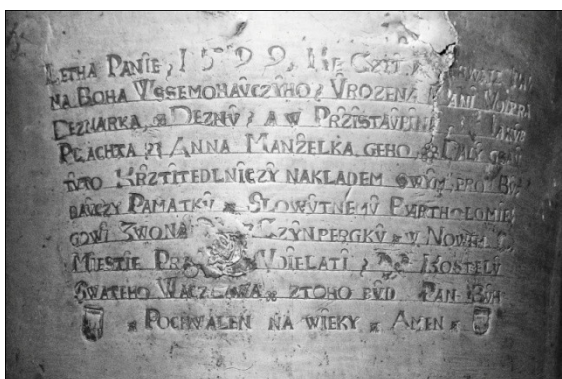 LETHA PANIE, 1599. KE CZTI
NA BOHA WSSEMOHAUCZYHO, UROZENA PANI WORRA
CEZNARKA, Z DEZNU, A W PRZISTAUPINI, JAKUB
PLACHTA, ANNA MANZELKA GEHO, DALY GSAU
TUTO KRZTITEDLNICZY NAKLADEM SWYM PRO BU
DAUCZY PAMATKU SLOWUTNEMU BARTHOLOMIE
GOWI ZWONA CZYNPERGKU W NOWEM
MIESTIE PRA UDIELATI, KOSTELU
SWATEHO WACZLAWA ZTOHO BUD PAN BUH
POCHWALEN NA WIEKY AMEN